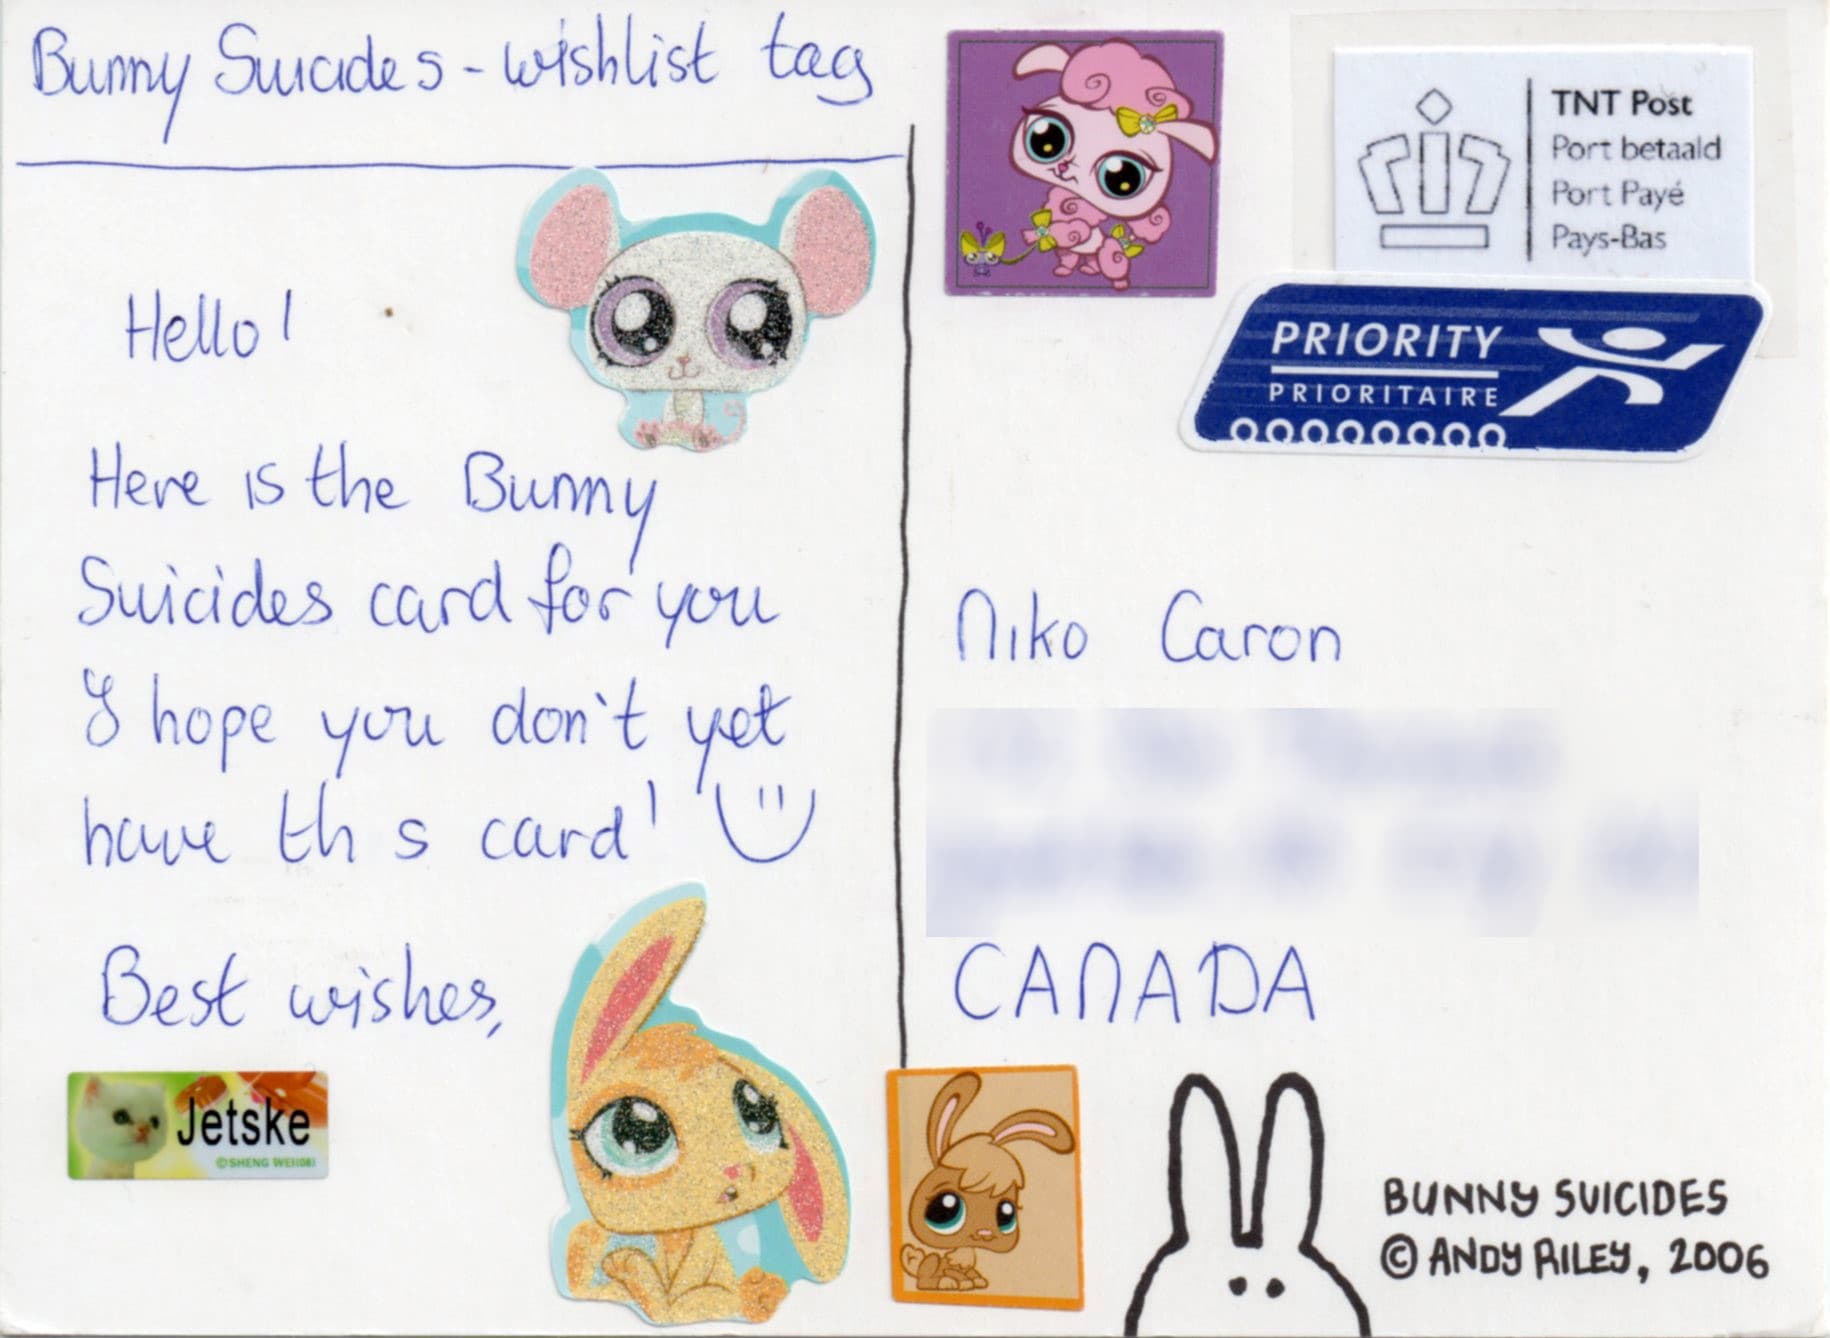 Bunny Suicides - wishlist tag
Hello!
Here is the Bunny
Suicides card for you
I hope you don't yet
have th s card!
Best wishes,
Jetske
©SHENG WEI1081
TNT Post
Port betaald
Port Payé
Pays-Bas
PRIORITY
PRIORITAIRE
Niko Caron
CANADA
BUNNY SUICIDES
© ANDY RILEY, 2006